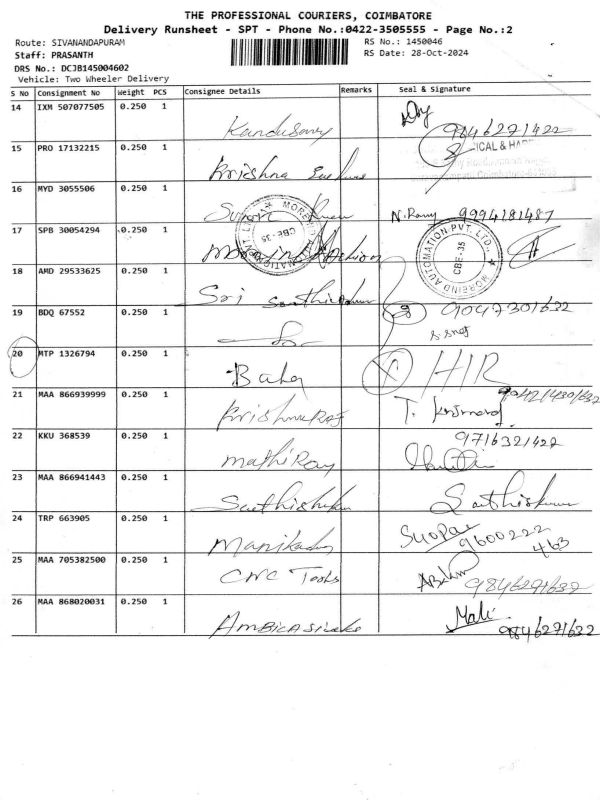 THE PROFESSIONAL COURIERS, COIMBATORE
Delivery Runsheet - SPT - Phone No.:0422-3505555 - Page No.:2
Route: SIVANANDAPURAM RS No.: 1450046
Staff: PRASANTH RS Date: 28-Oct-2024
DRS No.: DCJB145004602
Vehicle: Two Wheeler Delivery
S No Consignment No Weight PCS Consignee Details Remarks Seal & Signature
14 IXM 507077505 0.250 1 Kandusamy 9846271422
15 PRO 17132215 0.250 1 Krishna ICAL & HAR
16 MYD 3055506 0.250 1 N. Ramy 9994181487
17 SPB 30054294 0.250 1 MOREIND AUTOMATION PVT. LTD. CBE-35
18 AMD 29533625 0.250 1 Sri
19 BDQ 67552 0.250 1 9047301632
20 MTP 1326794 0.250 1 Babu HIR
21 MAA 866939999 0.250 1 KrishnaRaj T.
22 KKU 368539 0.250 1 MathiRaj 9716321422
23 MAA 866941443 0.250 1 Sathishkumar Sathiskumar
24 TRP 663905 0.250 1 Manikandan 9600222
463
25 MAA 705382500 0.250 1 CNC Tools 9846291632
26 MAA 868020031 0.250 1 Mali
9846271632